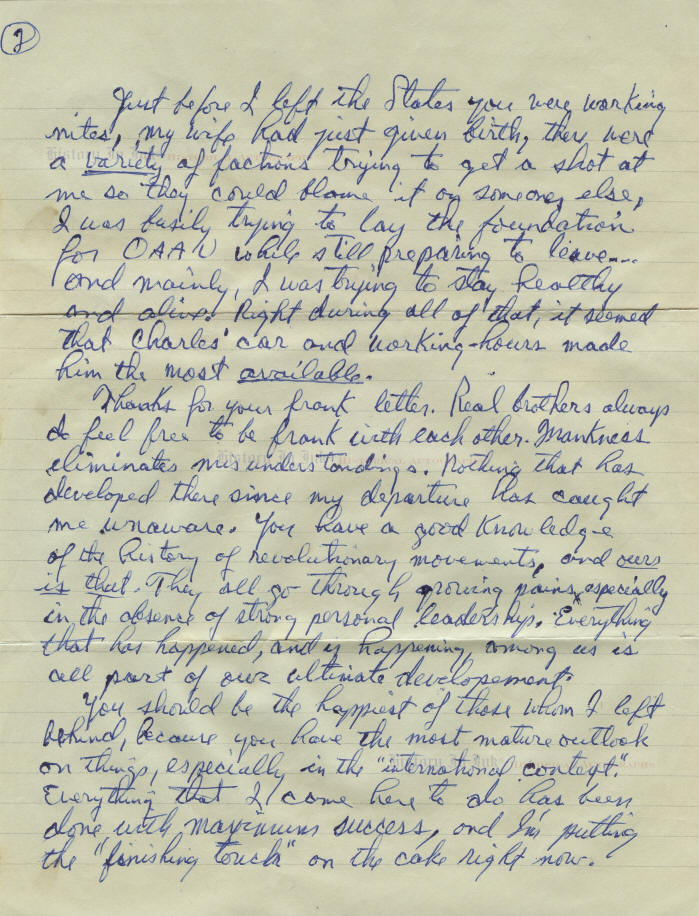 2
Just before I left the States you were working
nites, my wife had just given birth, there were
a variety of factions trying to get a shot at
me so they could blame it on someone else,
I was busily trying to lay the foundation
for OAAU while still preparing to leave....
and mainly, I was trying to stay healthy
and alive. Right during all of that, it seemed
that Charles' car and working-hours made
him the most available.
Thanks for your frank letter. Real brothers always
do feel free to be frank with each other. Frankness
eliminates misunderstandings. Nothing that has
developed there since my departure has caught
me unaware. You have a good knowledge
of the history of revolutionary movements, and ours
is that. They all go through growing pains, especially
in the absence of strong personal leadership. Everything
that has happened, and is happening, among us is
all part of our ultimate developement.
You should be the happiest of those whom I left
behind, because you have the most mature outlook
on things, especially in the "international context".
Everything that I came here to do has been
done with maximum success, and I'm putting
the "finishing touch" on the cake right now.